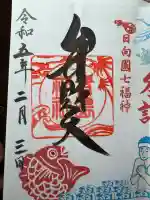 日向國七福神
弁財天
令和五年二月三日